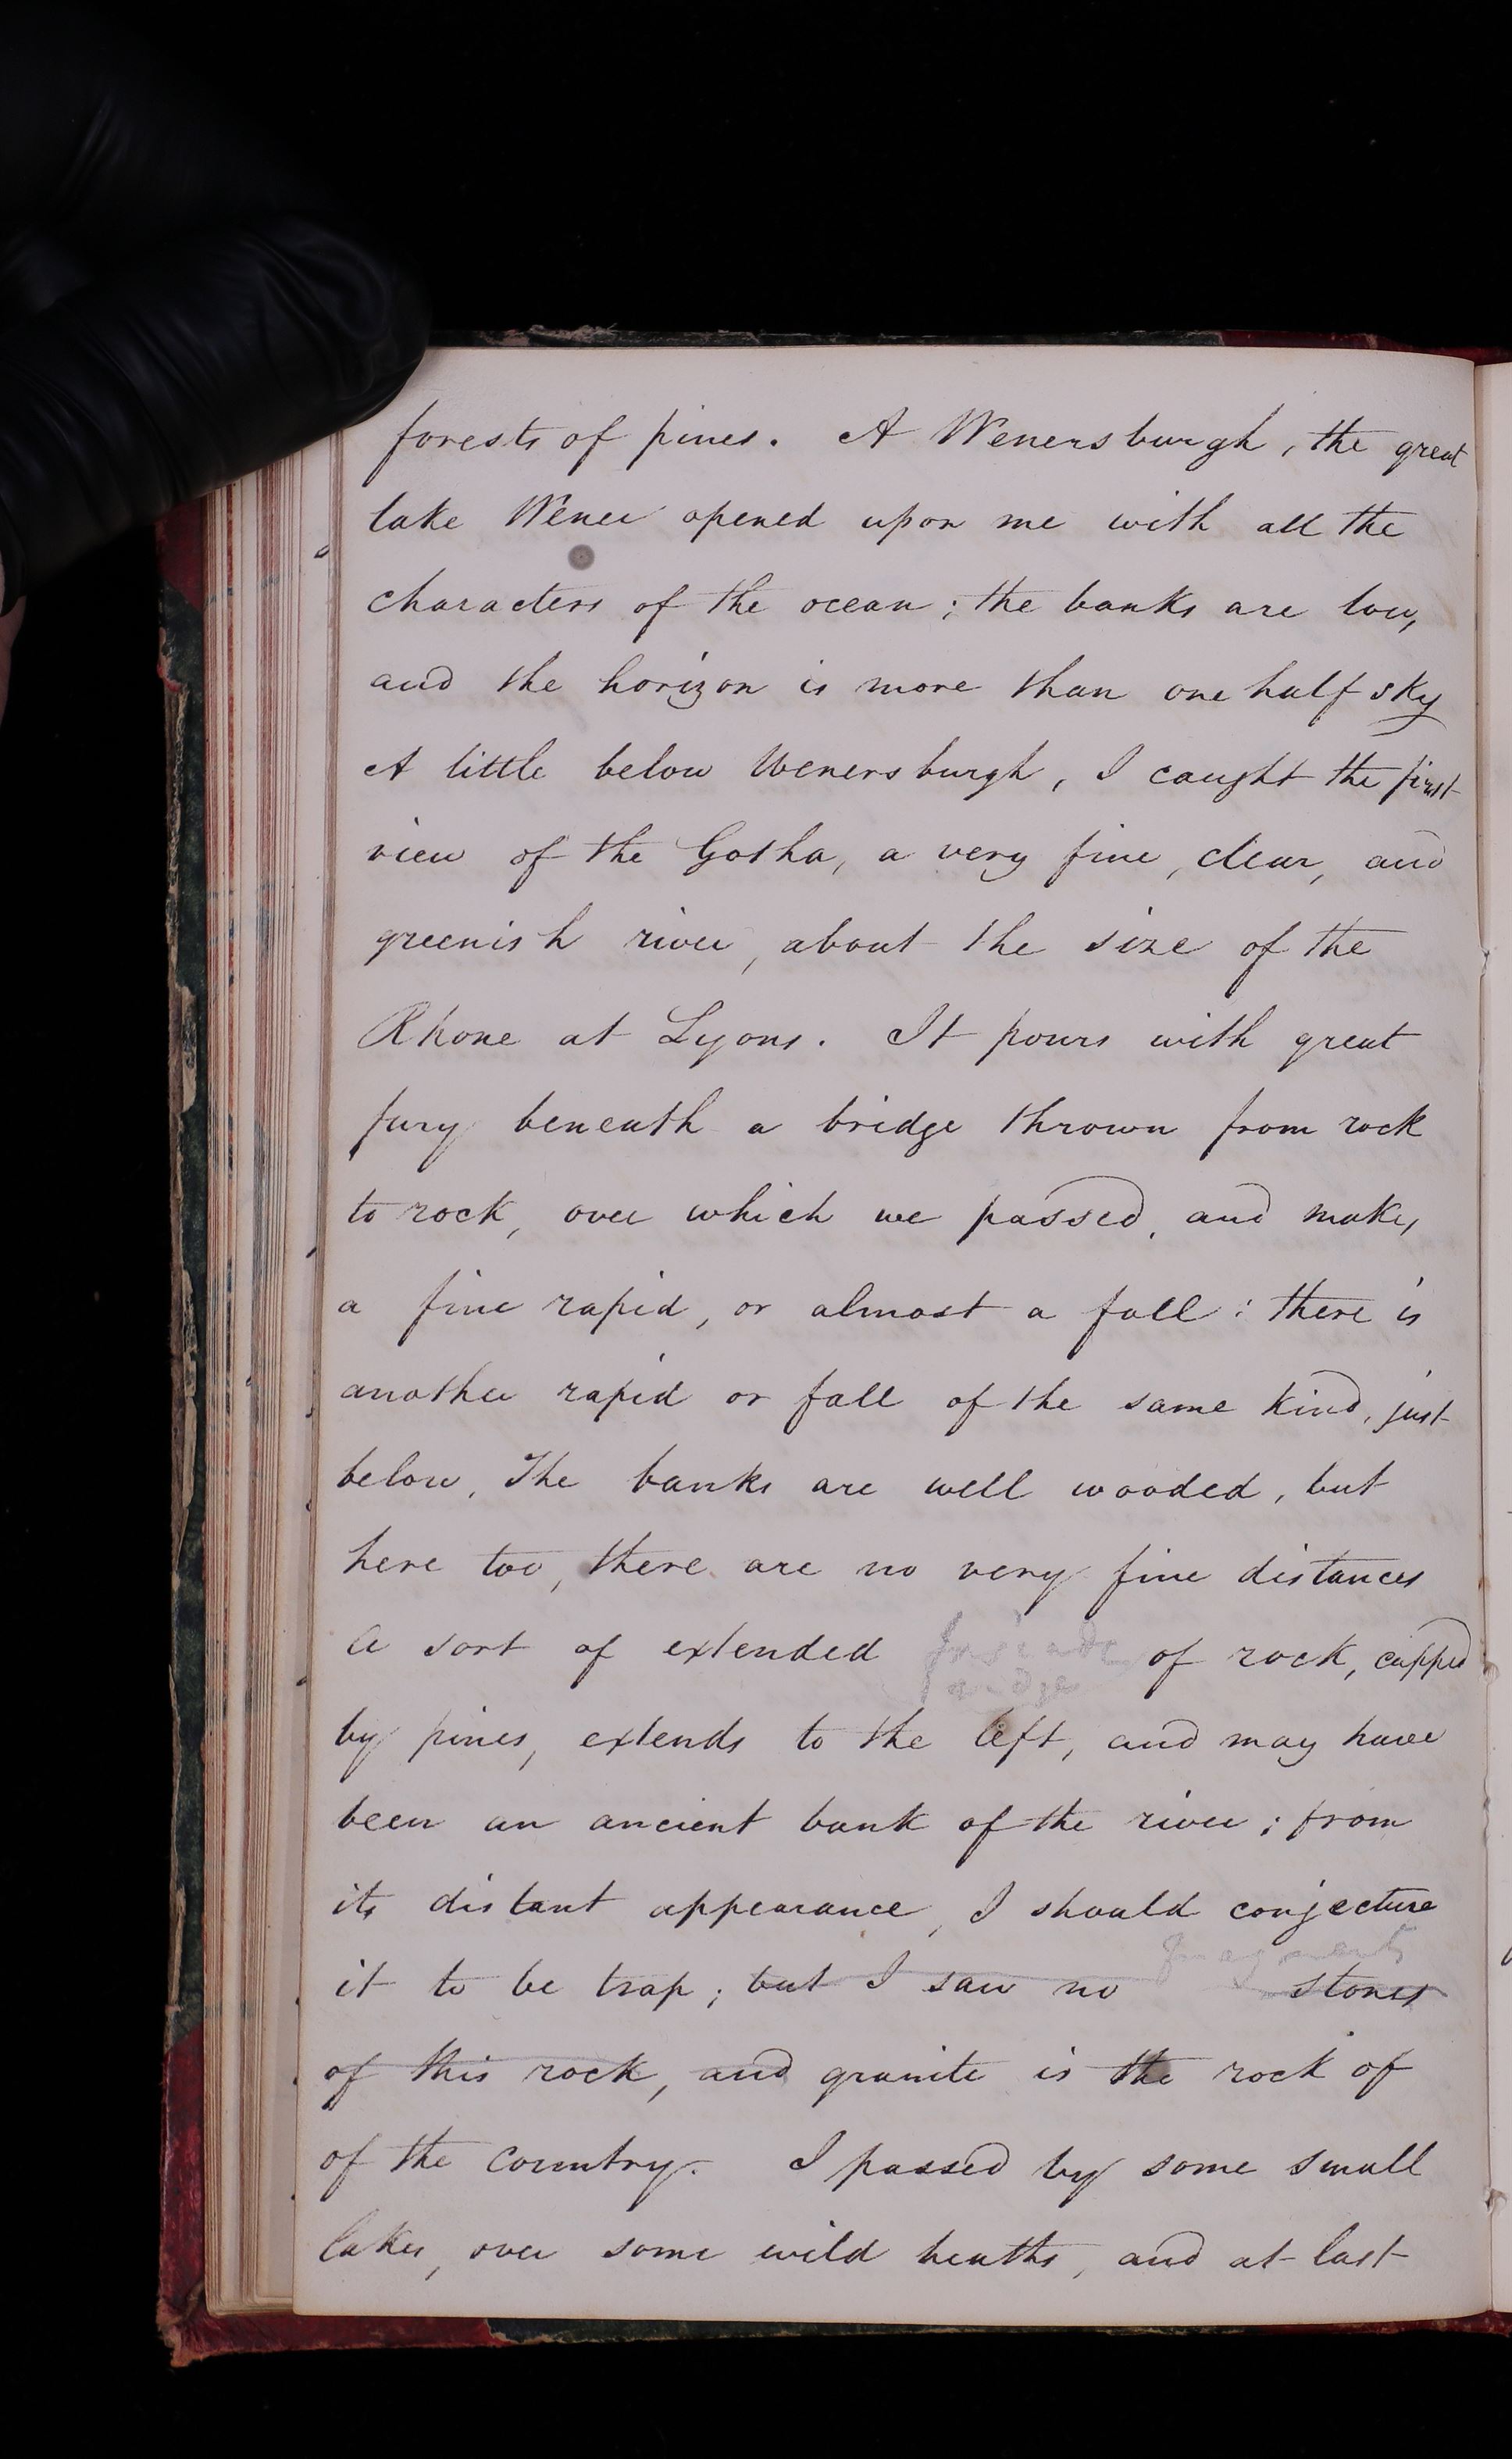 forests of pines. At Wenersburgh, the great
lake Wener opened upon me with all the
characters of the ocean; the banks are low,
and the horizon is more than one half sky
A little below Wenersburgh, I caught the first
view of the Gotha, a very fine, clear, and
greenish river, about the size of the
Rhone at Lyons. It pours with great
fury beneath a bridge thrown from rock
to rock, over which we passed, and makes
a fine rapid, or almost a fall: there is
another rapid or fall of the same kind, just
below. The banks are well wooded, but
here too, there are no very fine distances
a sort of extended of rock, capped
ridge
by pines, extends to the left, and may have
been an ancient bank of the river; from
its distant appearance, I should conjecture
fragments
it to be trap; but I saw no stones
of this rock, and granite is the rock of
of the country. I passed by some small
lakes, over some wild heaths, and at last